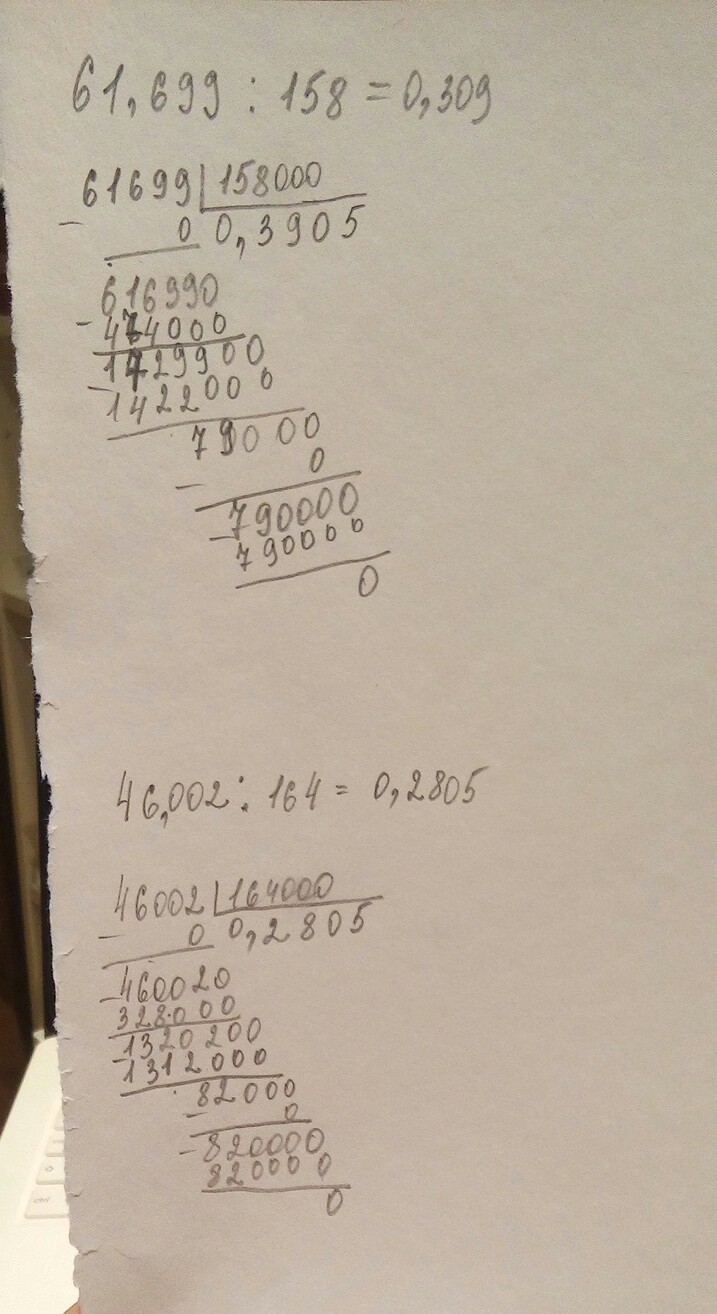 61,699 : 158 = 0,309
61699 158000
- 0 0,3905
616990
- 474000
1429900
- 1422000
79000
- 0
790000
- 790000
0
46,002 : 164 = 0,2805
46002 164000
- 0 0,2805
- 460020
328000
- 1320200
1312000
82000
- 0
- 820000
820000
0